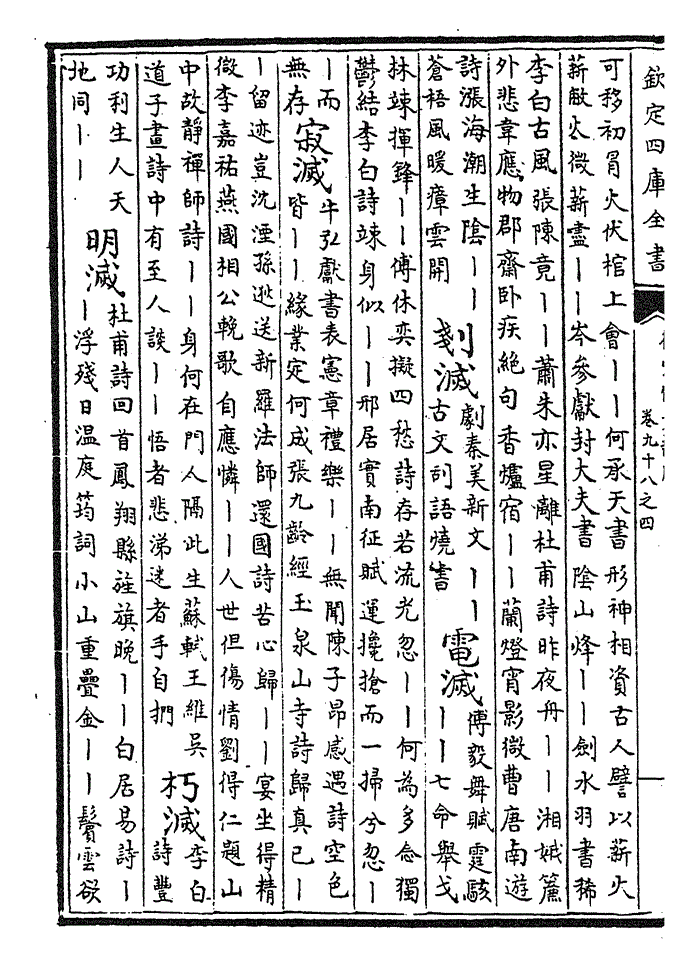 欽定四庫全書
卷九十八之四
可移初冐火伏棺上會丨丨何承天書形神相資古人譬以薪火
薪敝火微薪盡丨丨岑參獻封大夫書陰山烽丨丨劍水羽書稀
李白古風張陳竟丨丨蕭朱亦星離杜甫詩昨夜舟丨丨湘娥簾
外悲韋應物郡齋卧疾絶句香爐宿丨丨蘭燈宵影微曹唐南遊
詩漲海潮生陰丨丨
蒼梧風暖瘴雲開
剗滅
劇秦美新文丨丨
古文刮語燒書
電滅
傅毅舞賦霆駭
丨丨七命舉戈
抹竦揮鋒丨丨傅休奕擬四愁詩存若流光忽丨丨何為多念獨
鬱結李白詩竦身似丨丨邢居實南征賦運攙搶而一掃兮忽丨
丨而
無存
寂滅
牛弘獻書表憲章禮樂丨丨無聞陳子昂感遇詩空色
皆丨丨緣業定何成張九齡經玉泉山寺詩歸真已丨
丨留迹豈沈湮孫逖送新羅法師還國詩苦心歸丨丨宴坐得精
微李嘉祐燕國相公輓歌自應憐丨丨人世但傷情劉得仁題山
中故靜禪師詩丨丨身何在門人隔此生蘇軾王維吳
道子畫詩中有至人談丨丨悟者悲涕迷者手自捫
朽滅
李白
詩豐
功利生人天
地同丨丨
明滅
杜甫詩回首鳳翔縣旌旗晚丨丨白居易詩丨
丨浮殘日温庭筠詞小山重疊金丨丨鬢雲欲